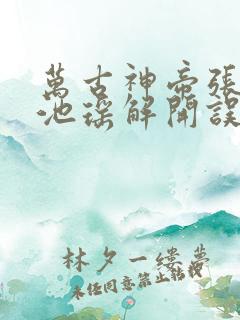 萬古神帝張
池瑤解開誤
林夕一縷夢
未經同意禁止轉載